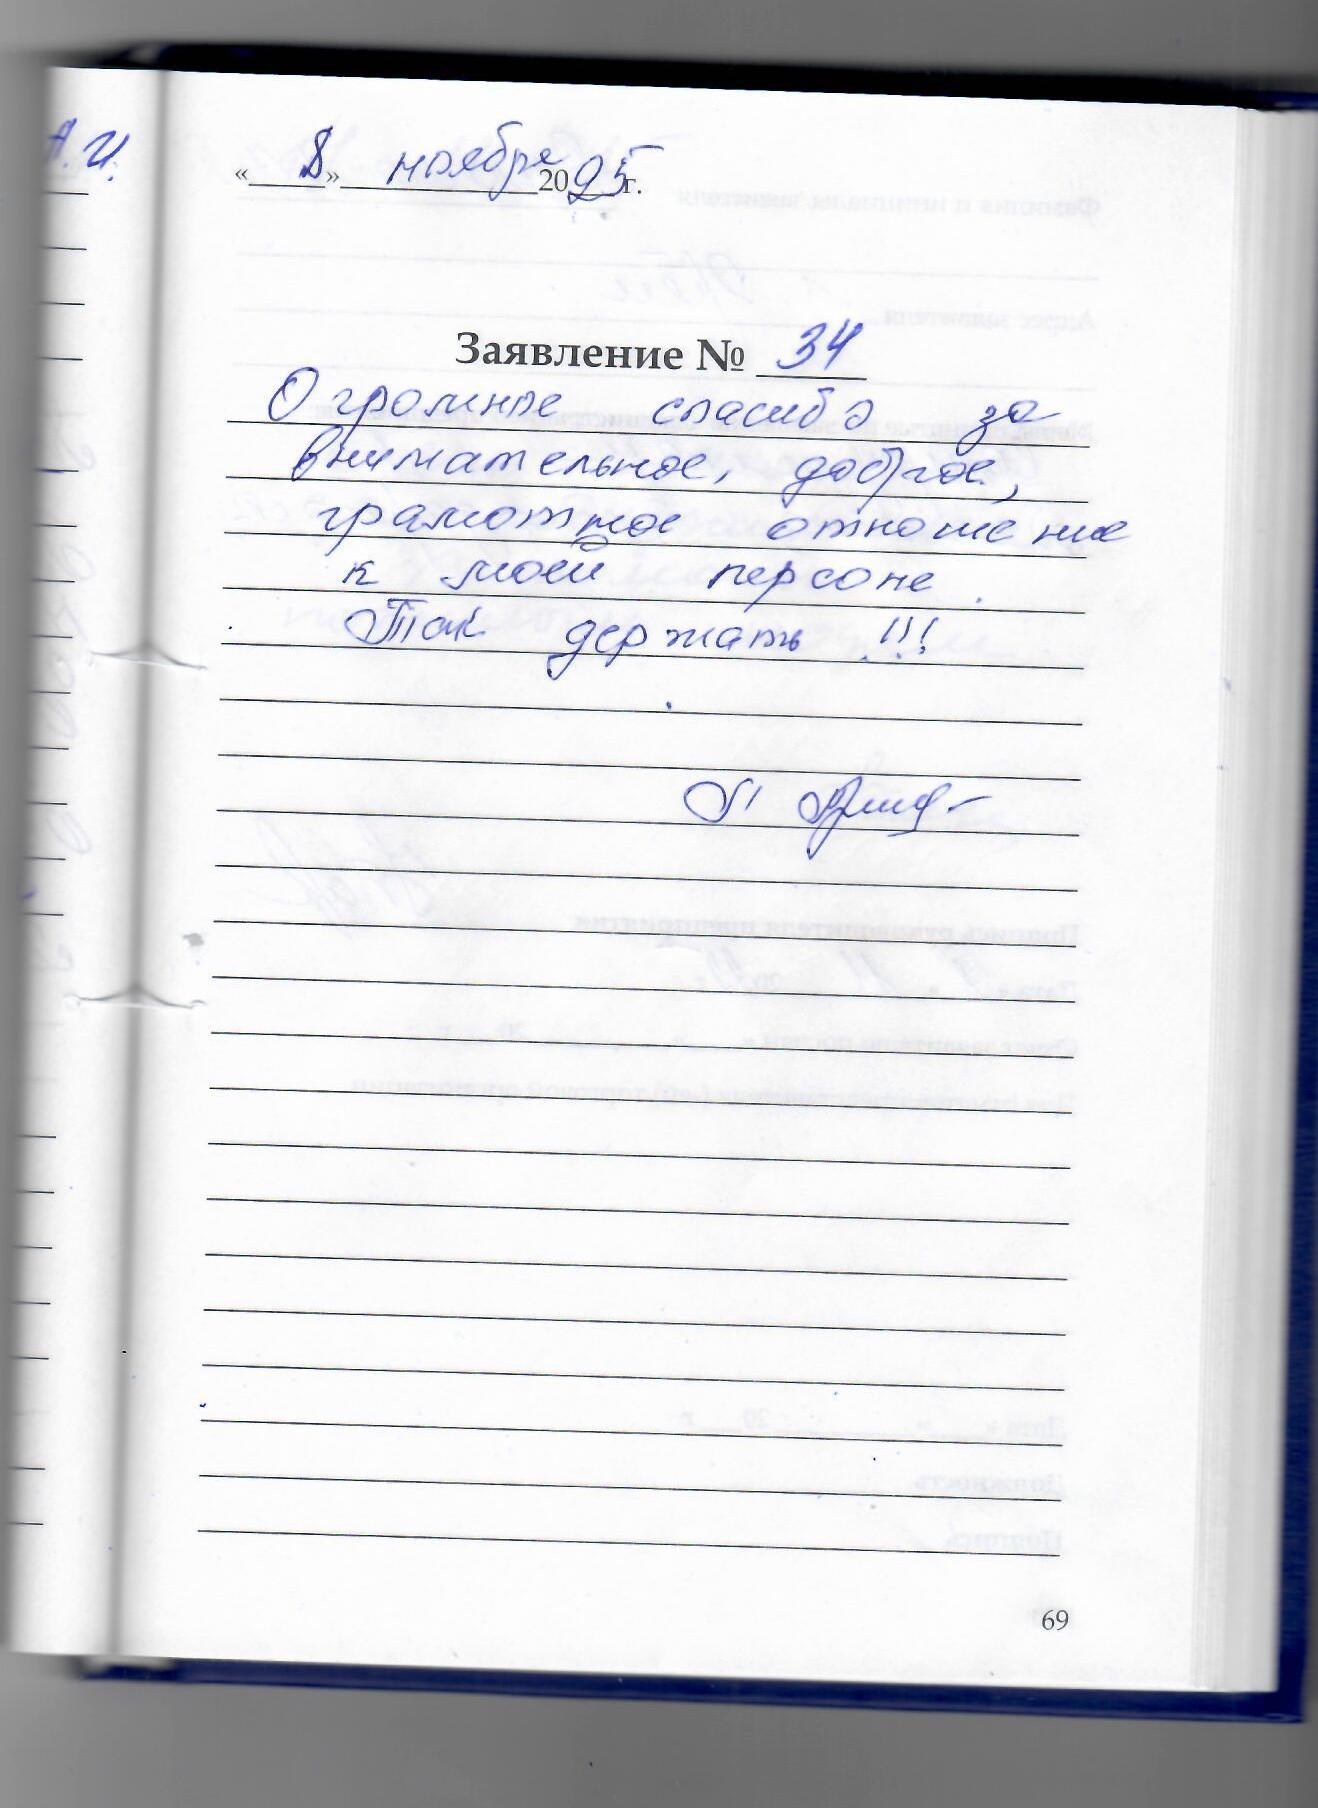 А.И.
«8» ноября 2025 г.
Заявление № 34
Огромное спасибо за
внимательное, доброе,
грамотное отношение
к моей персоне.
Так держать!!!
69